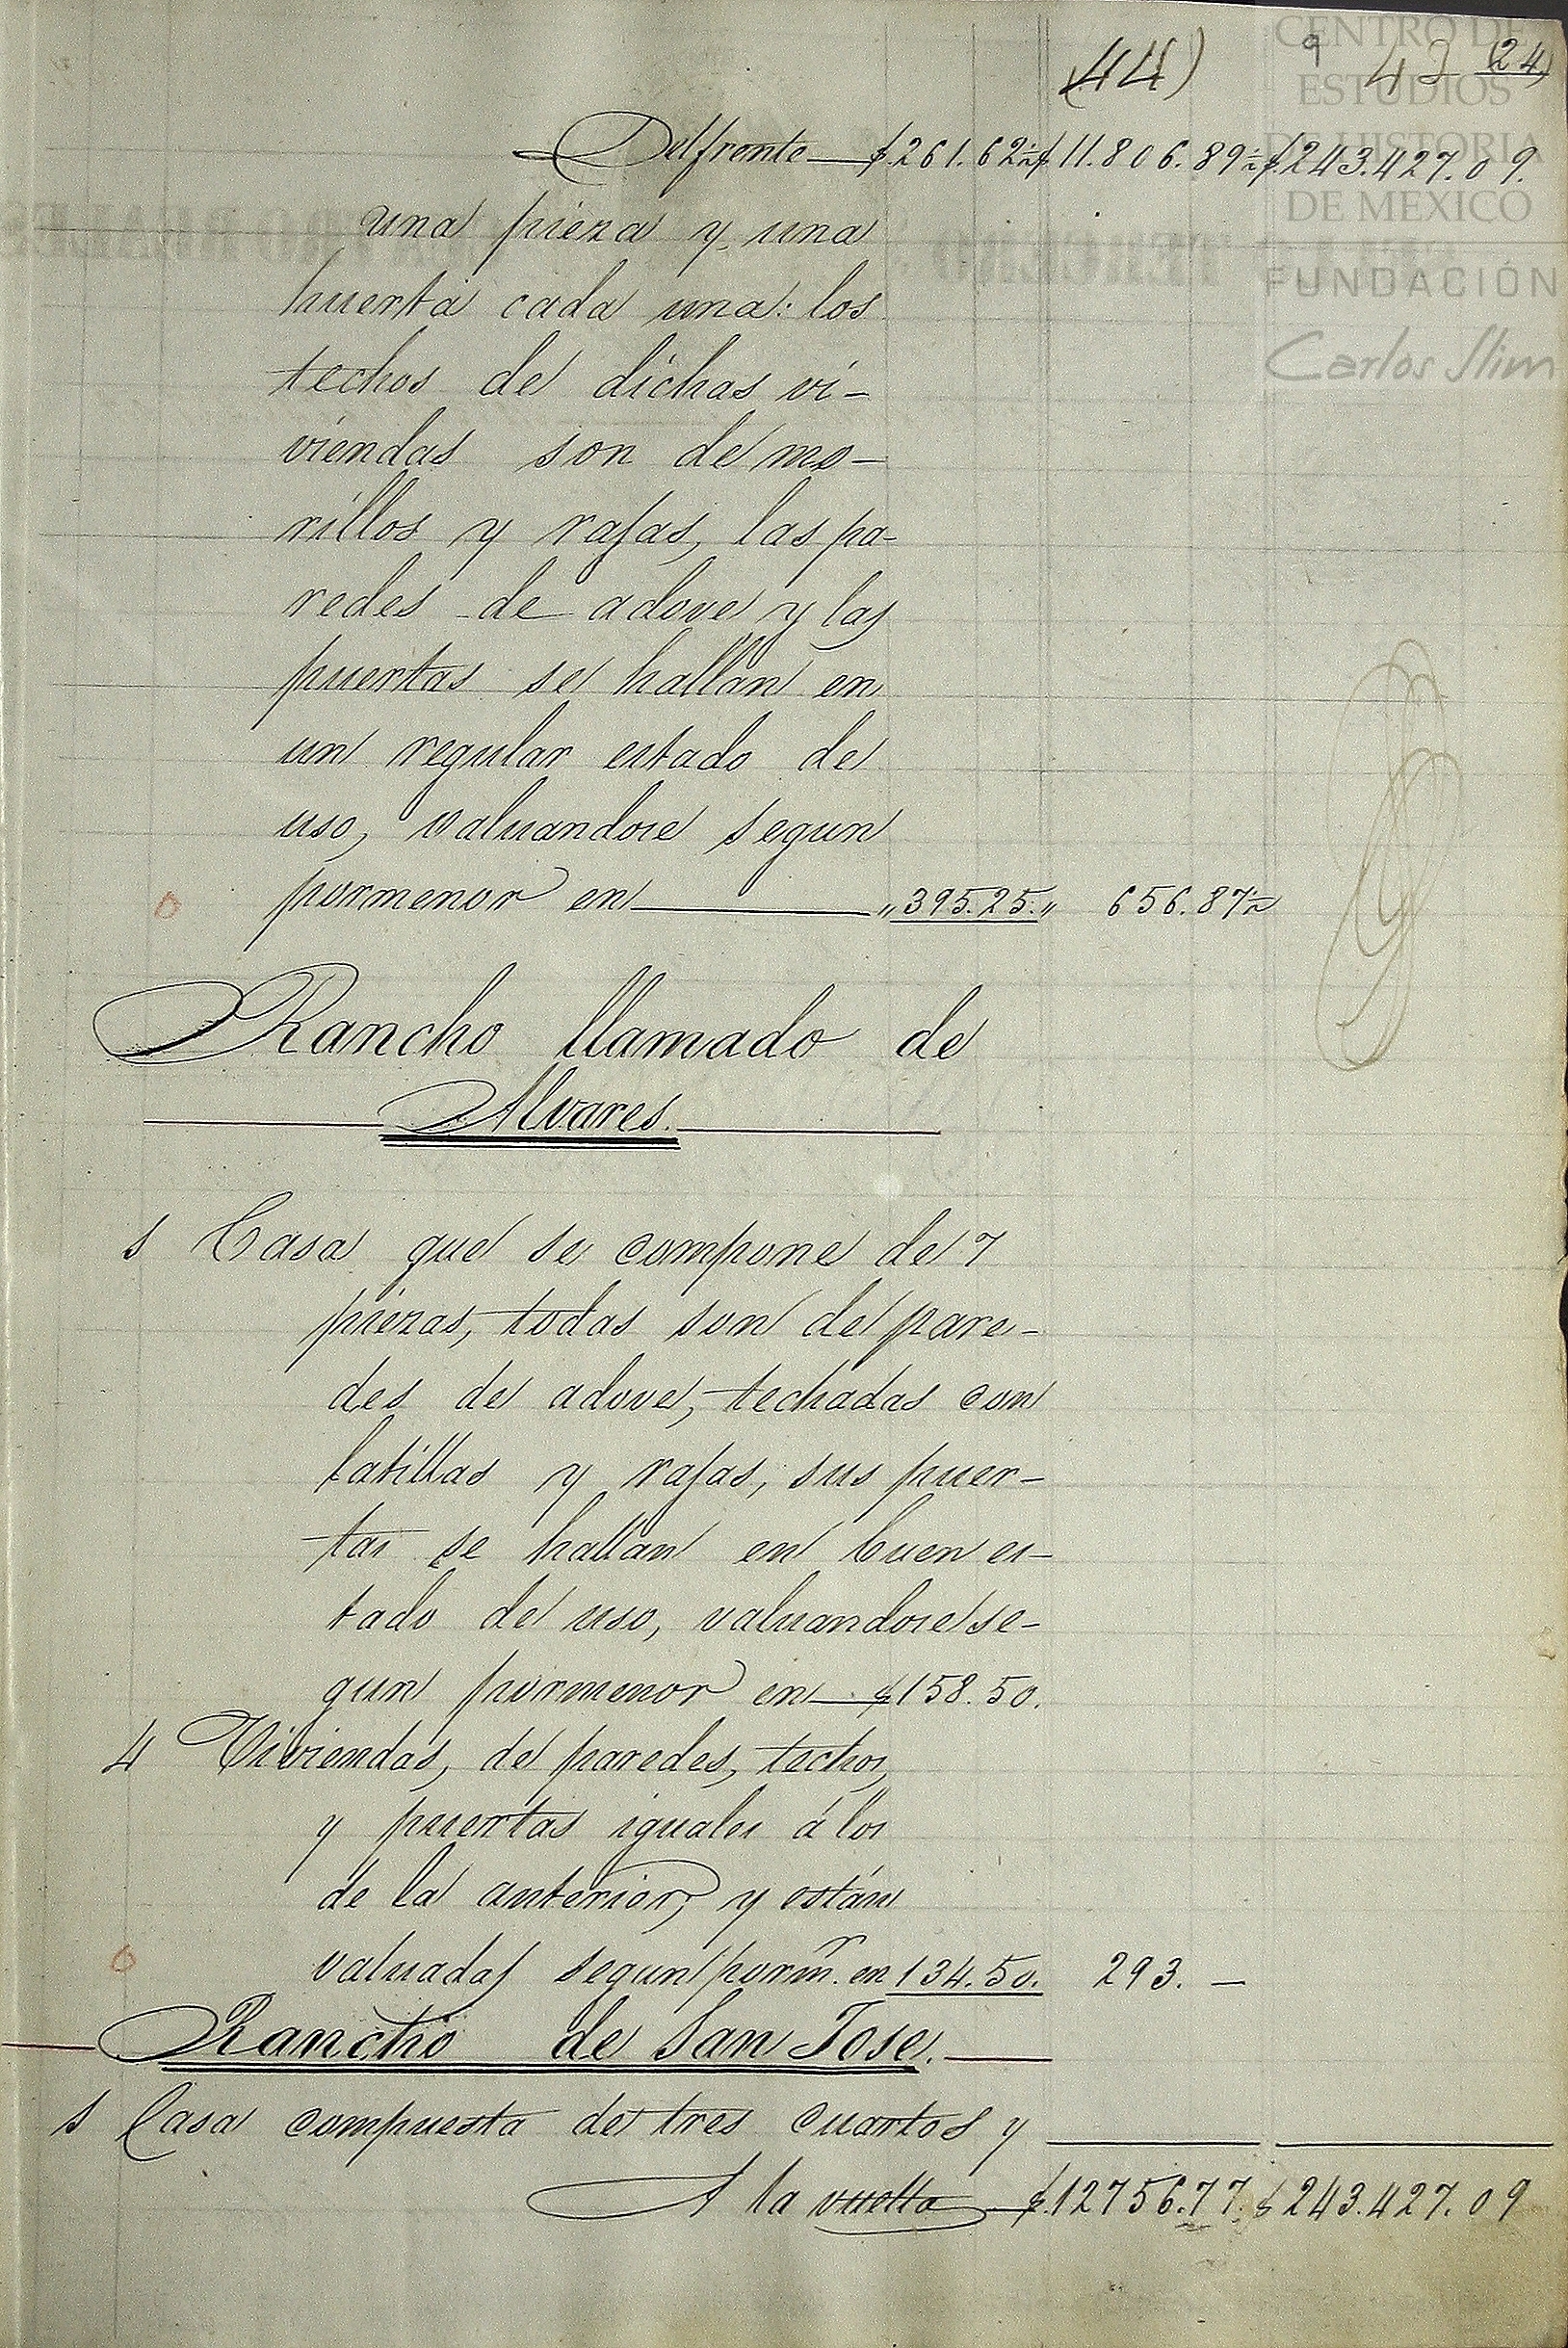 (44) 9 43 (24)
CENTRO DE
ESTUDIOS
DE HISTORIA
DE MEXICO
FUNDACIÓN
Carlos Slim
Del frente — $.261.62½ $11.806.89½ $243.427.09.
una pieza y una
huerta cada una: los
techos de dichas vi-
viendas son de mo-
rillos y rajas, las pa-
redes de adove y las
puertas se hallan en
un regular estado de
uso, valuandose segun
pormenor en — „395.25.„ 656.87½
Rancho llamado de
Alvares.
1 Casa que se compone de 7
piezas, todas son de pare-
des de adove, techadas con
latillas y rajas, sus puer-
tas se hallan en buen es-
tado de uso, valuandose se-
gun pormenor en — $158.50.
4 Viviendas, de paredes, techos,
y puertas iguales á los
de la anterior, y están
valuadas segun porm.r en 134.50. 293. —
Rancho de San Jose.
1 Casa compuesta de tres cuartos y
A la vuelta — $.12756.77. $243.427.09